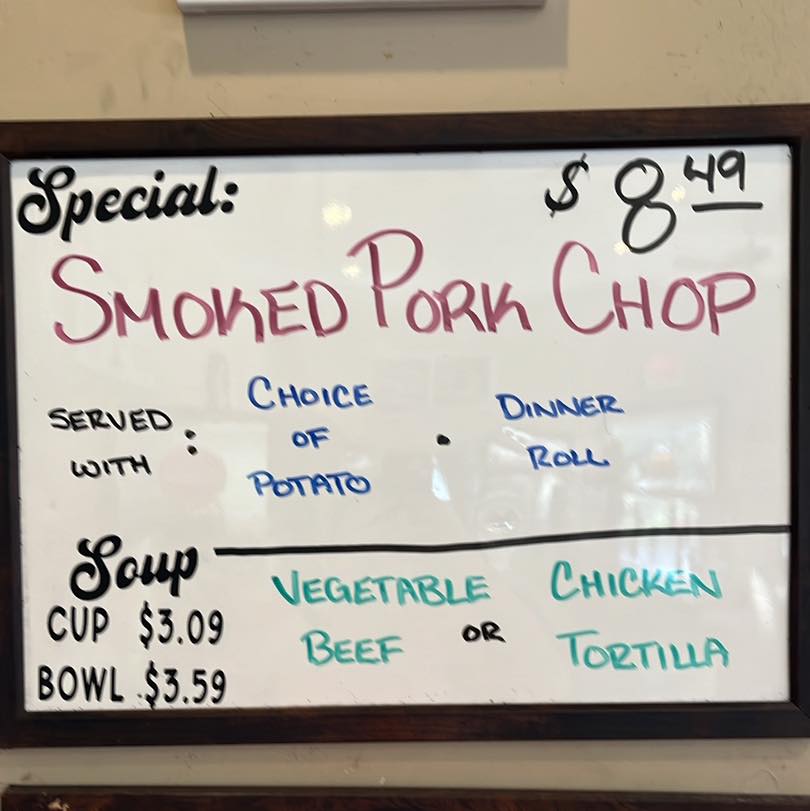 Special: $ 8 49
SMOKED PORK CHOP
SERVED WITH :
CHOICE OF POTATO
•
DINNER ROLL
Soup
CUP $3.09
BOWL $3.59
VEGETABLE BEEF
OR
CHICKEN TORTILLA